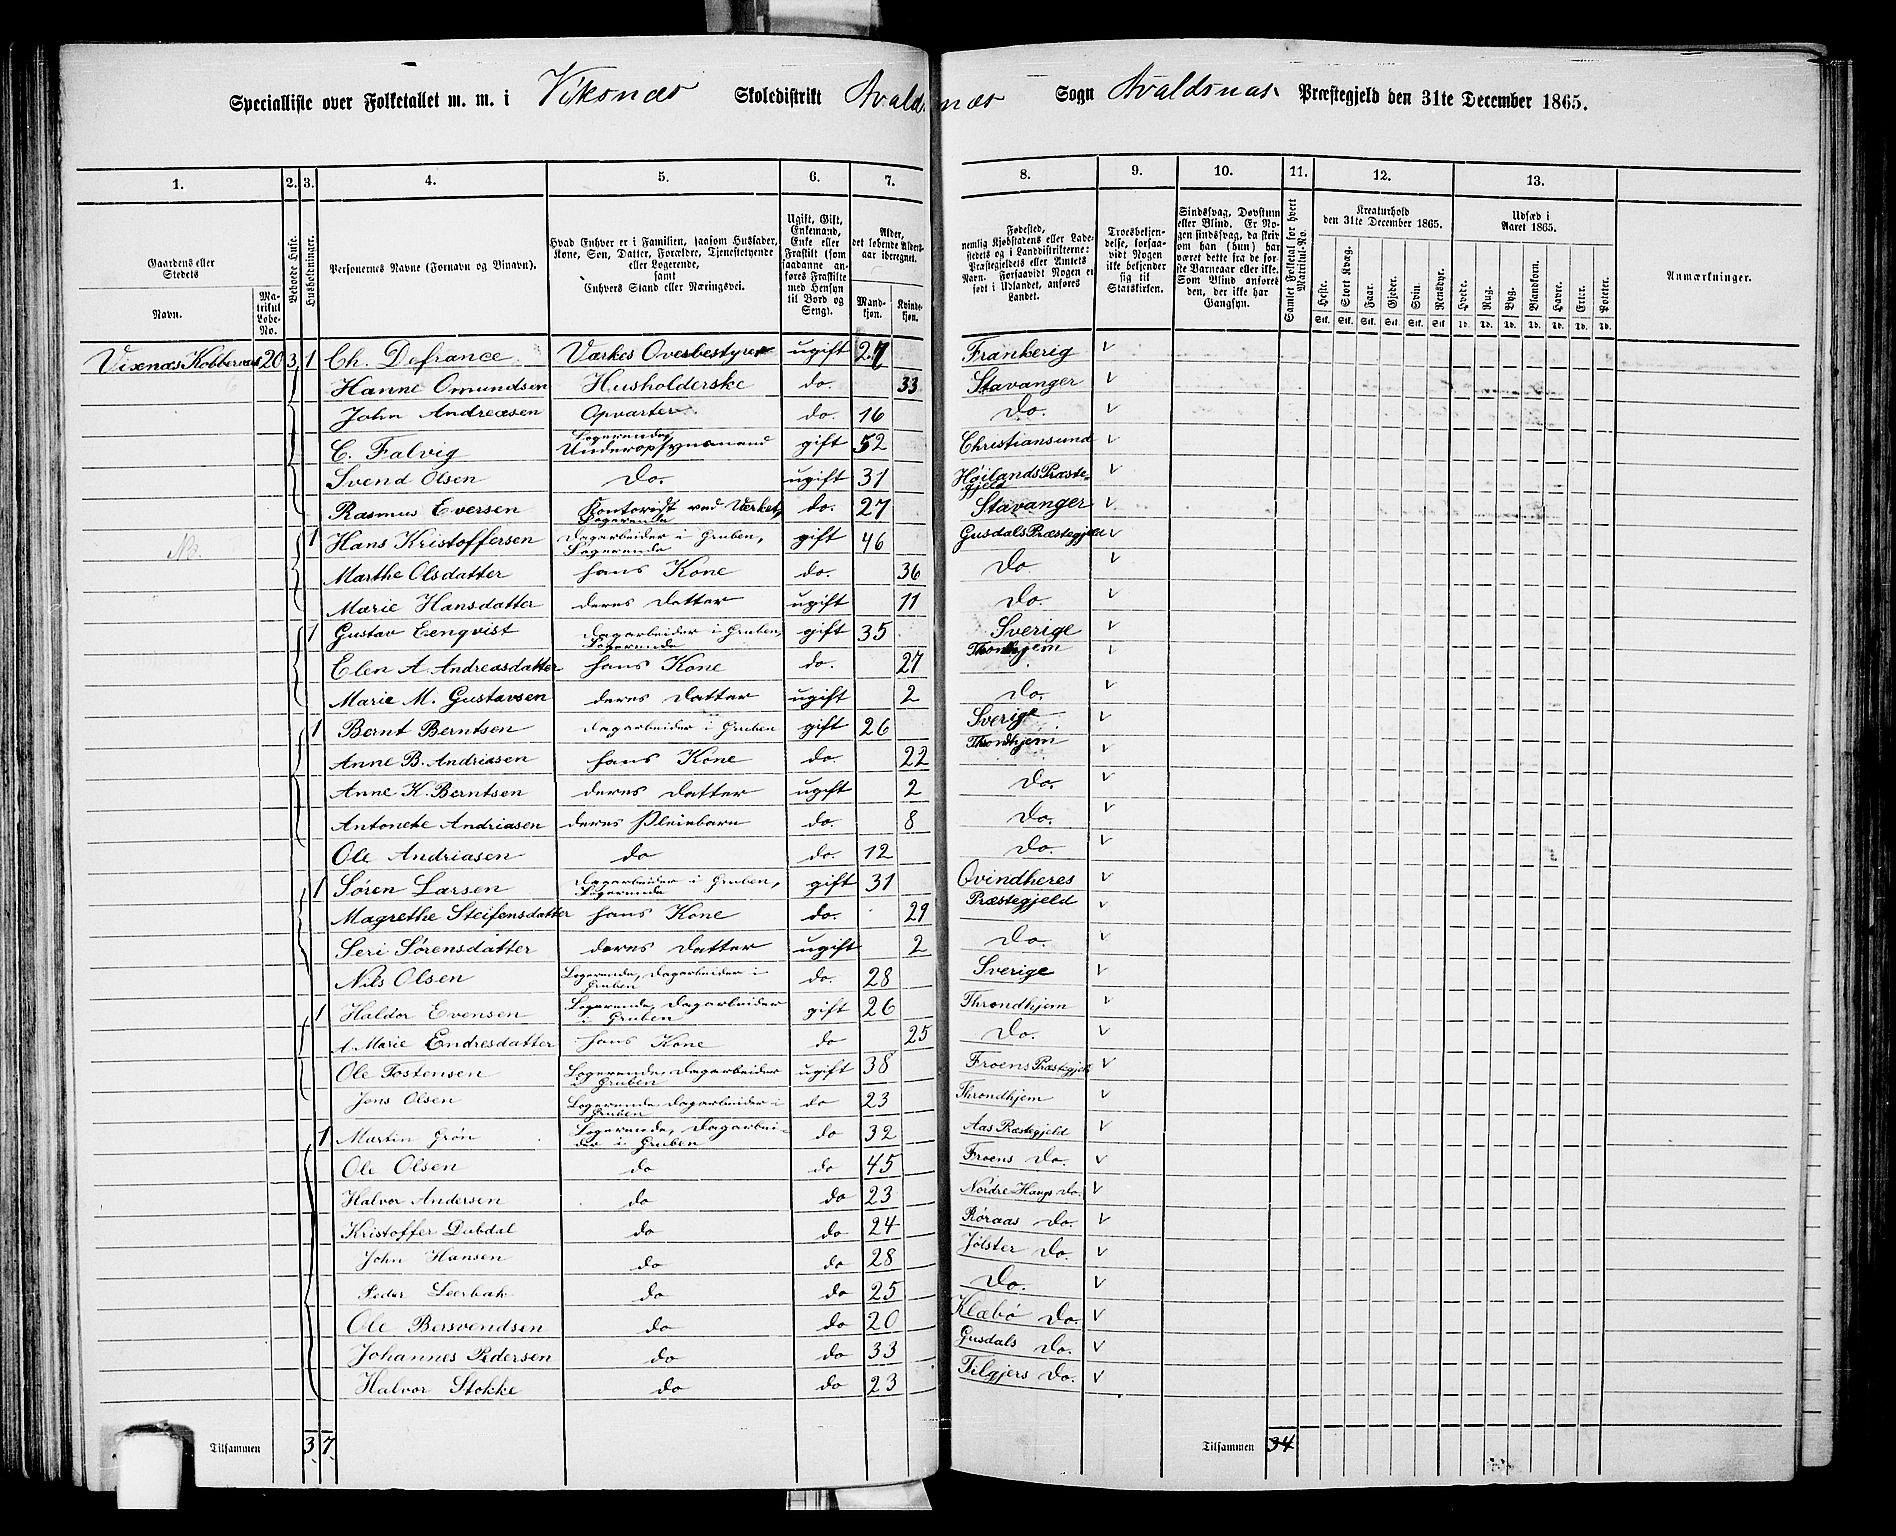 Specialliste over Folketallet m. m. i Viksnæs Skoledistrikt Avaldsnæs Sogn Avaldsnæs Præstegjeld den 31te December 1865.
1. 2. 3. 4. 5. 6. 7. 8. 9. 10. 11. 12. 13.
Gaardens eller Stedets
Navn.
Matrikul Løbe-No.
Beboede Huse.
Husholdninger.
Personernes Navne (Fornavn og Binavn).
Hvad Enhver er i Familien, saasom Husfader, Kone, Søn, Datter, Forældre, Tjenestetyende eller Logerende, samt Enhvers Stand eller Næringsvei.
Ugift, Gift, Enkemand, Enke eller Fraskilt (som saadanne anføres Fraskilte med Hensyn til Bord og Seng).
Alder, det løbende Alders-aar iberegnet.
Mand-kjøn.
Kvinde-kjøn.
Fødested, nemlig Kjøbstadens eller Ladestedets og i Landdistrikterne: Præstegjeldets eller Amtets Navn. Forsaavidt Nogen er født i Udlandet, anføres Landet.
Troesbekjendelse, forsaavidt Nogen ikke bekjender sig til Statskirken.
Sindssvag, Døvstum eller Blind. Er Nogen sindssvag, da skrives om han (hun) har været dette fra de første Barneaar eller ikke. Som Blind anføres den, der ikke har Gangsyn.
Samlet Folketal for hvert Matrikul-No.
Kreaturhold den 31te December 1865.
Heste. Stort Kvæg. Faar. Gjeder. Svin. Rensdyr.
Stk. Stk. Stk. Stk. Stk. Stk.
Udsæd i Aaret 1865.
Hvede. Rug. Byg. Blandkorn. Havre. Erter. Poteter.
Td. Td. Td. Td. Td. Td. Td.
Anmærkninger.
Vixnæs Kobberværk 20 3 1 Ch. Defrance Værkes Overbestyrer ugift 27 Frankerig
Hanne Omundsen Husholderske do. 33 Stavanger
John Andreasen Opvarter do. 16 Do.
C. Falvig Logerende, Underopsynsmand gift 52 Christiansund
Svend Olsen Do. ugift 31 Høilands Præstegjeld
Rasmus Eversen Kontorist ved Værket, Logerende do. 27 Stavanger
1 Hans Kristoffersen Dagarbeider i Gruben, Logerende gift 46 Gusdals Præstegjeld
Marthe Olsdatter hans Kone do. 36 Do.
Marie Hansdatter deres Datter ugift 11 Do.
1 Gustav Eenqvist Dagarbeider i Gruben, Logerende gift 35 Sverige
Elen A. Andreasdatter hans Kone do. 27 Throndhjem
Marie M. Gustavsen deres Datter ugift 2 Do.
1 Bernt Berntsen Dagarbeider i Gruben gift 26 Sverige
Anne B. Andriasen hans Kone do. 22 Throndhjem
Anne K. Berntsen deres Datter ugift 2 Do.
Antonete Andriasen deres Pleiebarn do. 8 Do.
Ole Andriasen do do. 12 Do.
1 Søren Larsen Dagarbeider i Gruben, Logerende gift 31 Qvindheres
Magrethe Steifensdatter hans Kone do. 29 Præstegjeld
Seri Sørensdatter deres Datter ugift 2 Do.
Nils Olsen Logerende, Dagarbeider i Gruben do. 28 Sverige
1 Haldor Evensen Logerende, Dagarbeider i Gruben gift 26 Throndhjem
A. Marie Endresdatter hans Kone do 25 Do.
Ole Tostensen Logerende, Dagarbeider i Gruben ugift 38 Froens Præstegjeld
Jens Olsen Logerende Dagarbeider i Gruben do 23 Throndhjem
1 Martin Grøn Logerende, Dagarbeider i Gruben do 32 Aas Præstegjeld
Ole Olsen do do 45 Froens Do.
Halvor Andersen do do 23 Nordre Do.
Kristoffer Dubdal do do 24 Røraas Do.
John Hansen do do 28 Jølster Do.
Peder Leerbak do do 25 Do.
Ole Bersvendsen do do 20 Klæbø Do.
Johannes Pedersen do do 33 Gusdals Do.
Halvor Stokke do do 23 Do.
Tilsammen 3 7 Tilsammen 34